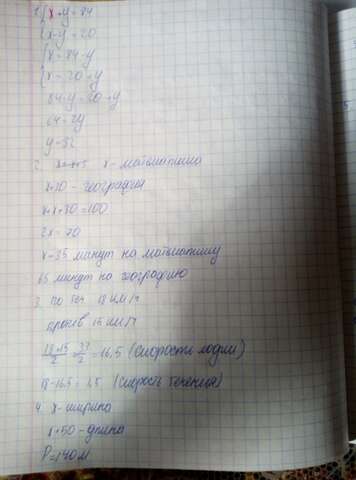 1. {x+y=84
{x-y=20
{x=84-y
{x=20+y
84-y=20+y
64=2y
y=32
2. x - математика
x+30 - география
x+x+30=100
2x=70
x=35 минут на математику
65 минут на географию
3. По теч 18 км/ч
против 15 км/ч
18+15/2 = 33/2 = 16,5 (скорость лодки)
18-16,5=1,5 (скорость течения)
4. x - ширина
x+50 - длина
P=140м